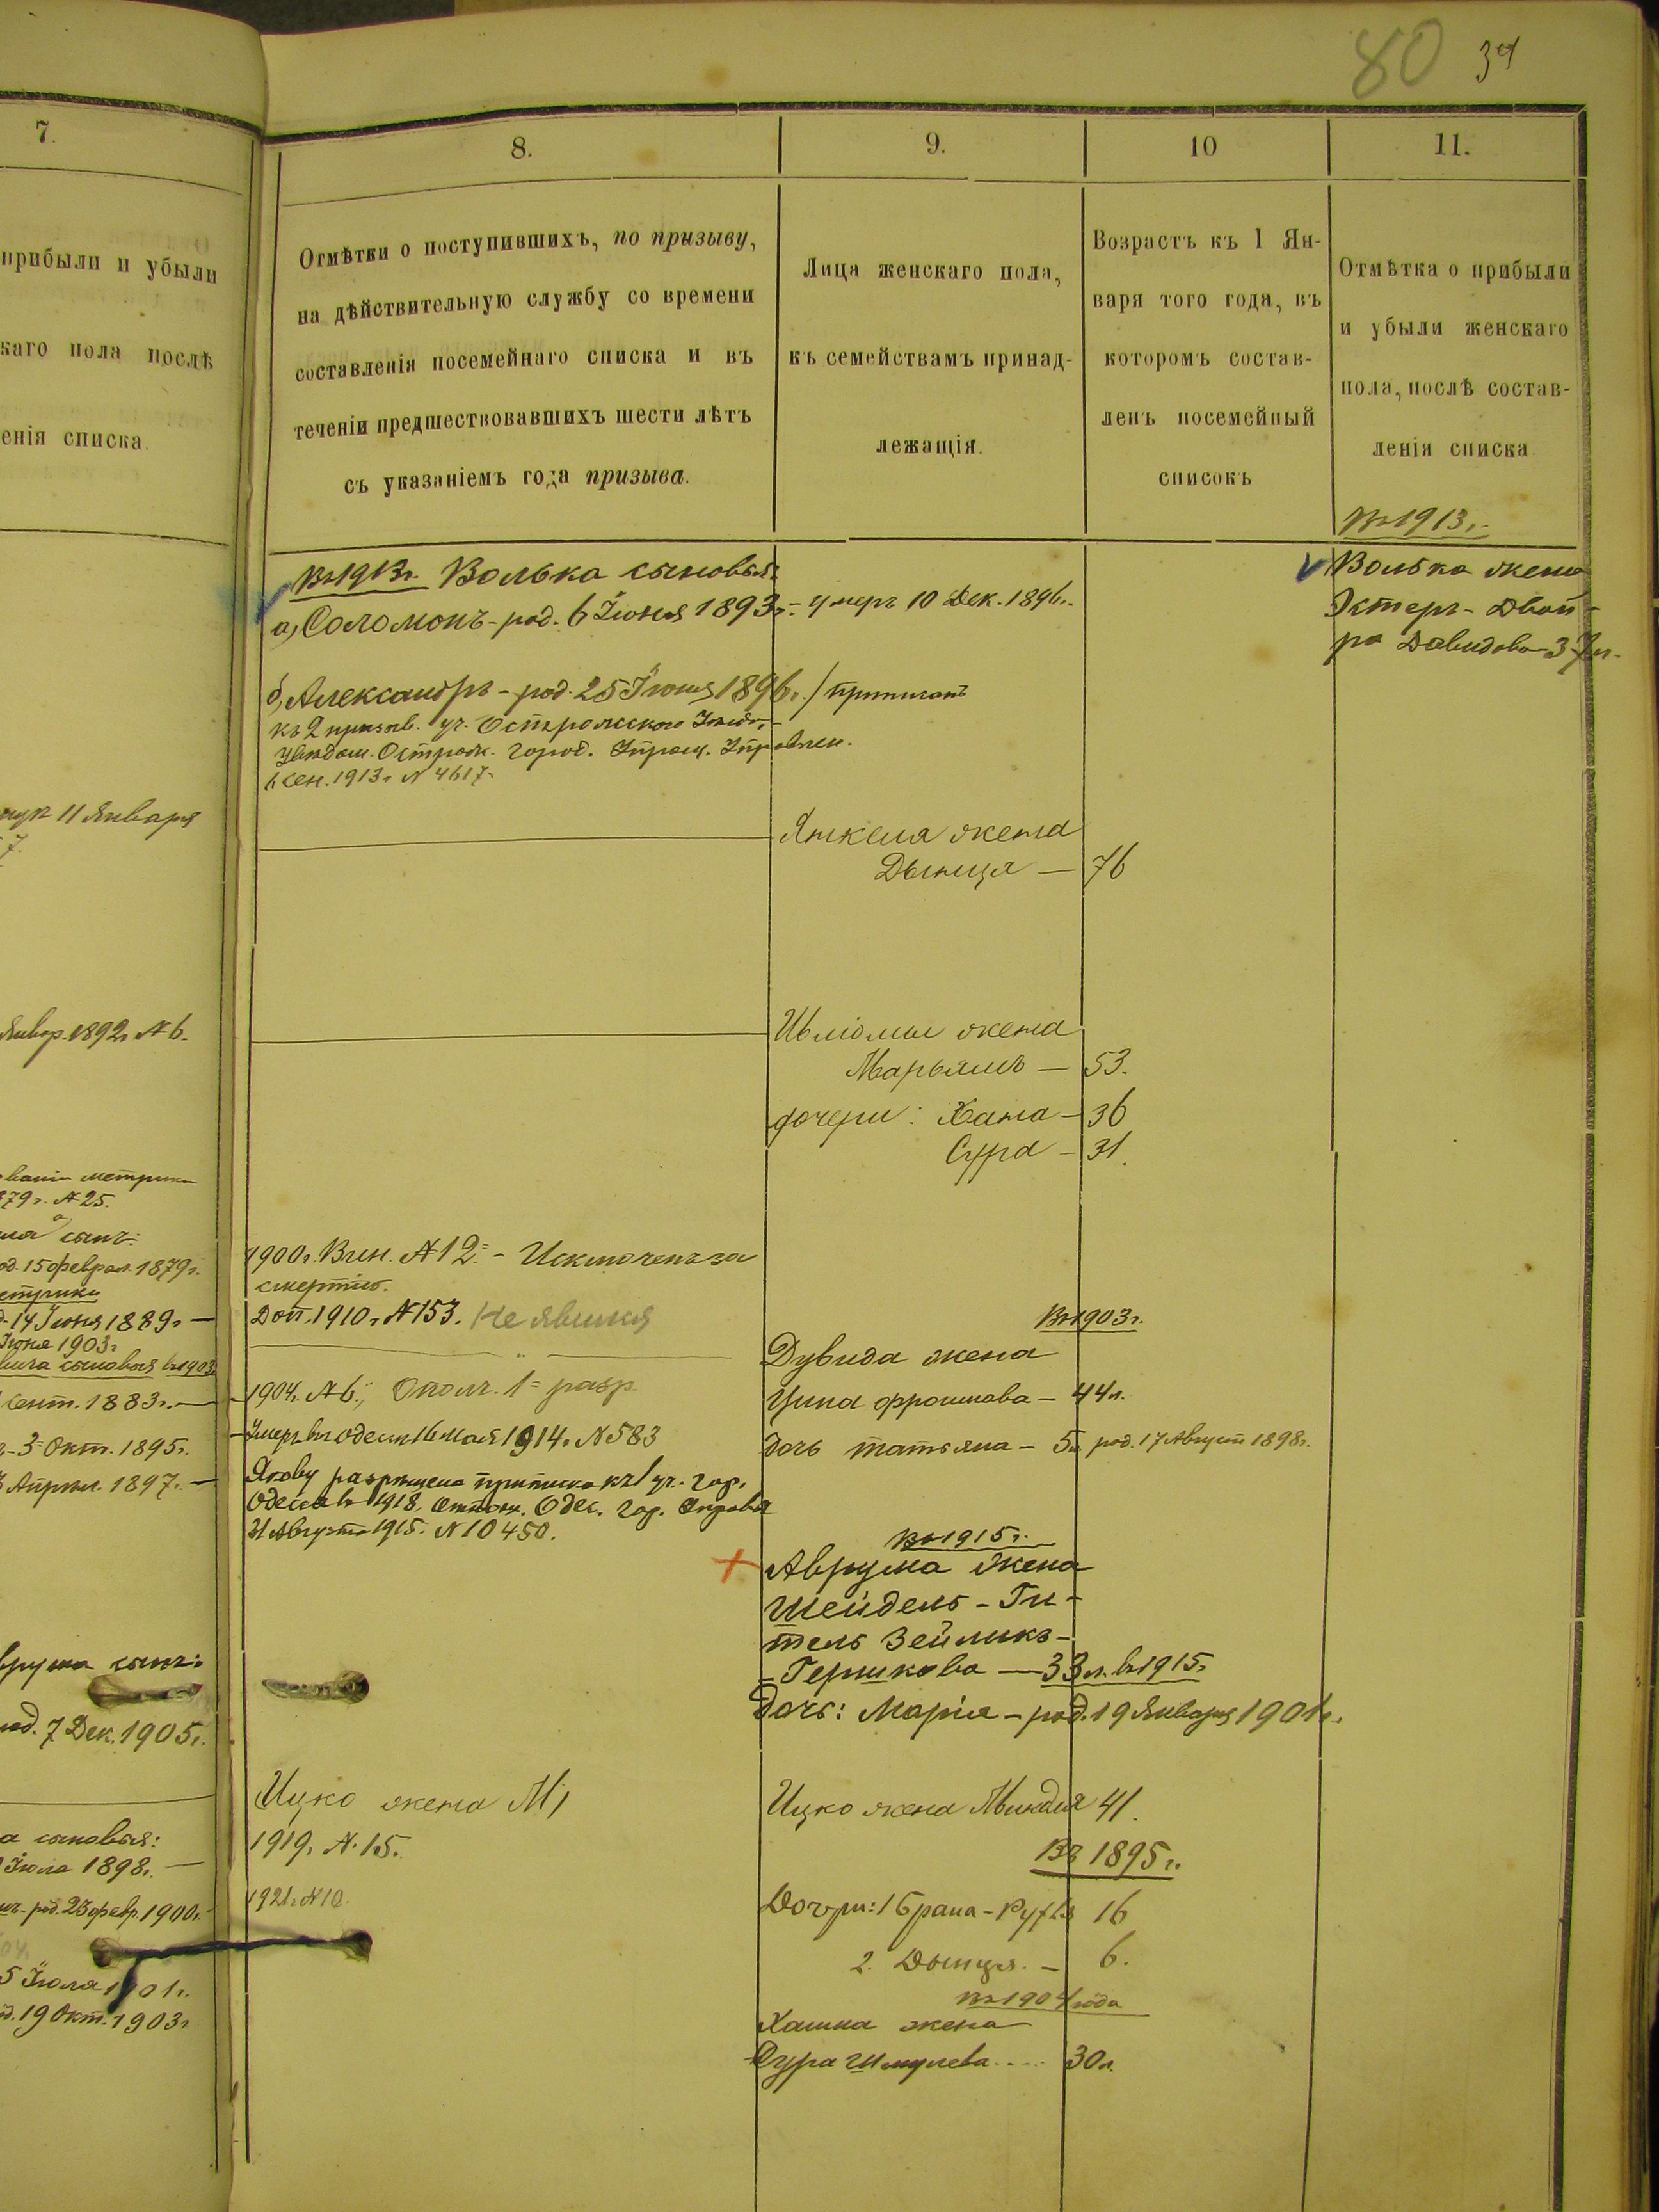 80 34
7.
8.
9.
10
11.
прибыли и убыли
каго пола послѣ
енія списка.
Отмѣтки о поступившихъ, по призыву,
на дѣйствительную службу со времени
составленія посемейнаго списка и въ
теченіи предшествовавшихъ шести лѣтъ
съ указаніемъ года призыва.
Лица женскаго пола,
къ семействамъ принад-
лежащія.
Возрастъ къ 1 Ян-
варя того года, въ
которомъ состав-
ленъ посемейный
списокъ
Отмѣтка о прибыли
и убыли женскаго
пола, послѣ состав-
ленія списка.
Въ 1913 г.
Волька жена
Эстеръ-Двой-
ра Давидова-37 л.
Въ 1913 г. Волька сыновья:
а) Соломонъ-род. 6 Іюня 1893 г.- умеръ 10 Дек. 1896 г.
б) Александръ-род. 25 Іюня 1896 г. / приписанъ
къ 2 призыв. уч. Острожскаго
Увѣдом. Острож. город. Управлен.
Сен. 1913 г. N 4617.
11 Января
7.
Янкеля жена
Дыниця — 76
Янвр. 1892 г. N 6.
жена
Марьямъ — 53.
дочери: Хана - 36
Сура - 31.
метрики
79 г. N 25.
сынъ:
од. 15 феврал. 1879 г.
14 Іюня 1889 г. —
Іюня 1903 г.
сыновья въ 1903
Сент. 1883 г. —
3 Окт. 1895 г.
Апрѣл. 1897 г. —
1900 г. N 12 - Исключенъ за
смертію.
Доп. 1910 г. N 153. Не явился
1904 г. N 6, Ополч. 1 разр.
- Умеръ въ Одессѣ 16 мая 1914 г. N 583
Якову разрѣшена приписка къ 1 уч. гор.
Одесса въ 1918, Одес. гор. Управы
31 Августа 1915. N 10450.
Въ 1903 г.
Дувида жена
Ципа Фроимова - 44 л.
дочь Татьяна - 5 л. род. 17 Август 1898 г.
Въ 1915 г.
Аврума жена
Шейдель-Ги-
тель Зейликъ-
-Гершкова — 33 л. въ 1915 г.
дочь: Марія - род. 19 Января 1901 г.
врума сынъ:
род. 7 Дек. 1905 г.
Ицко жена М
1919 г. N. 15.
1921 г. N 10.
а сыновья:
Іюля 1898 г. —
род. 23 февр. 1900 г.
5 Іюля 1901 г.
д. 19 Окт. 1903 г.
Ицко жена Миндля 41.
Въ 1895 г.
Дочри: 1 Брана-Рухля 16
2. Дыниця. — 6.
Въ 1904 года
Хаима жена
Сура Шмулева.... 30 л.